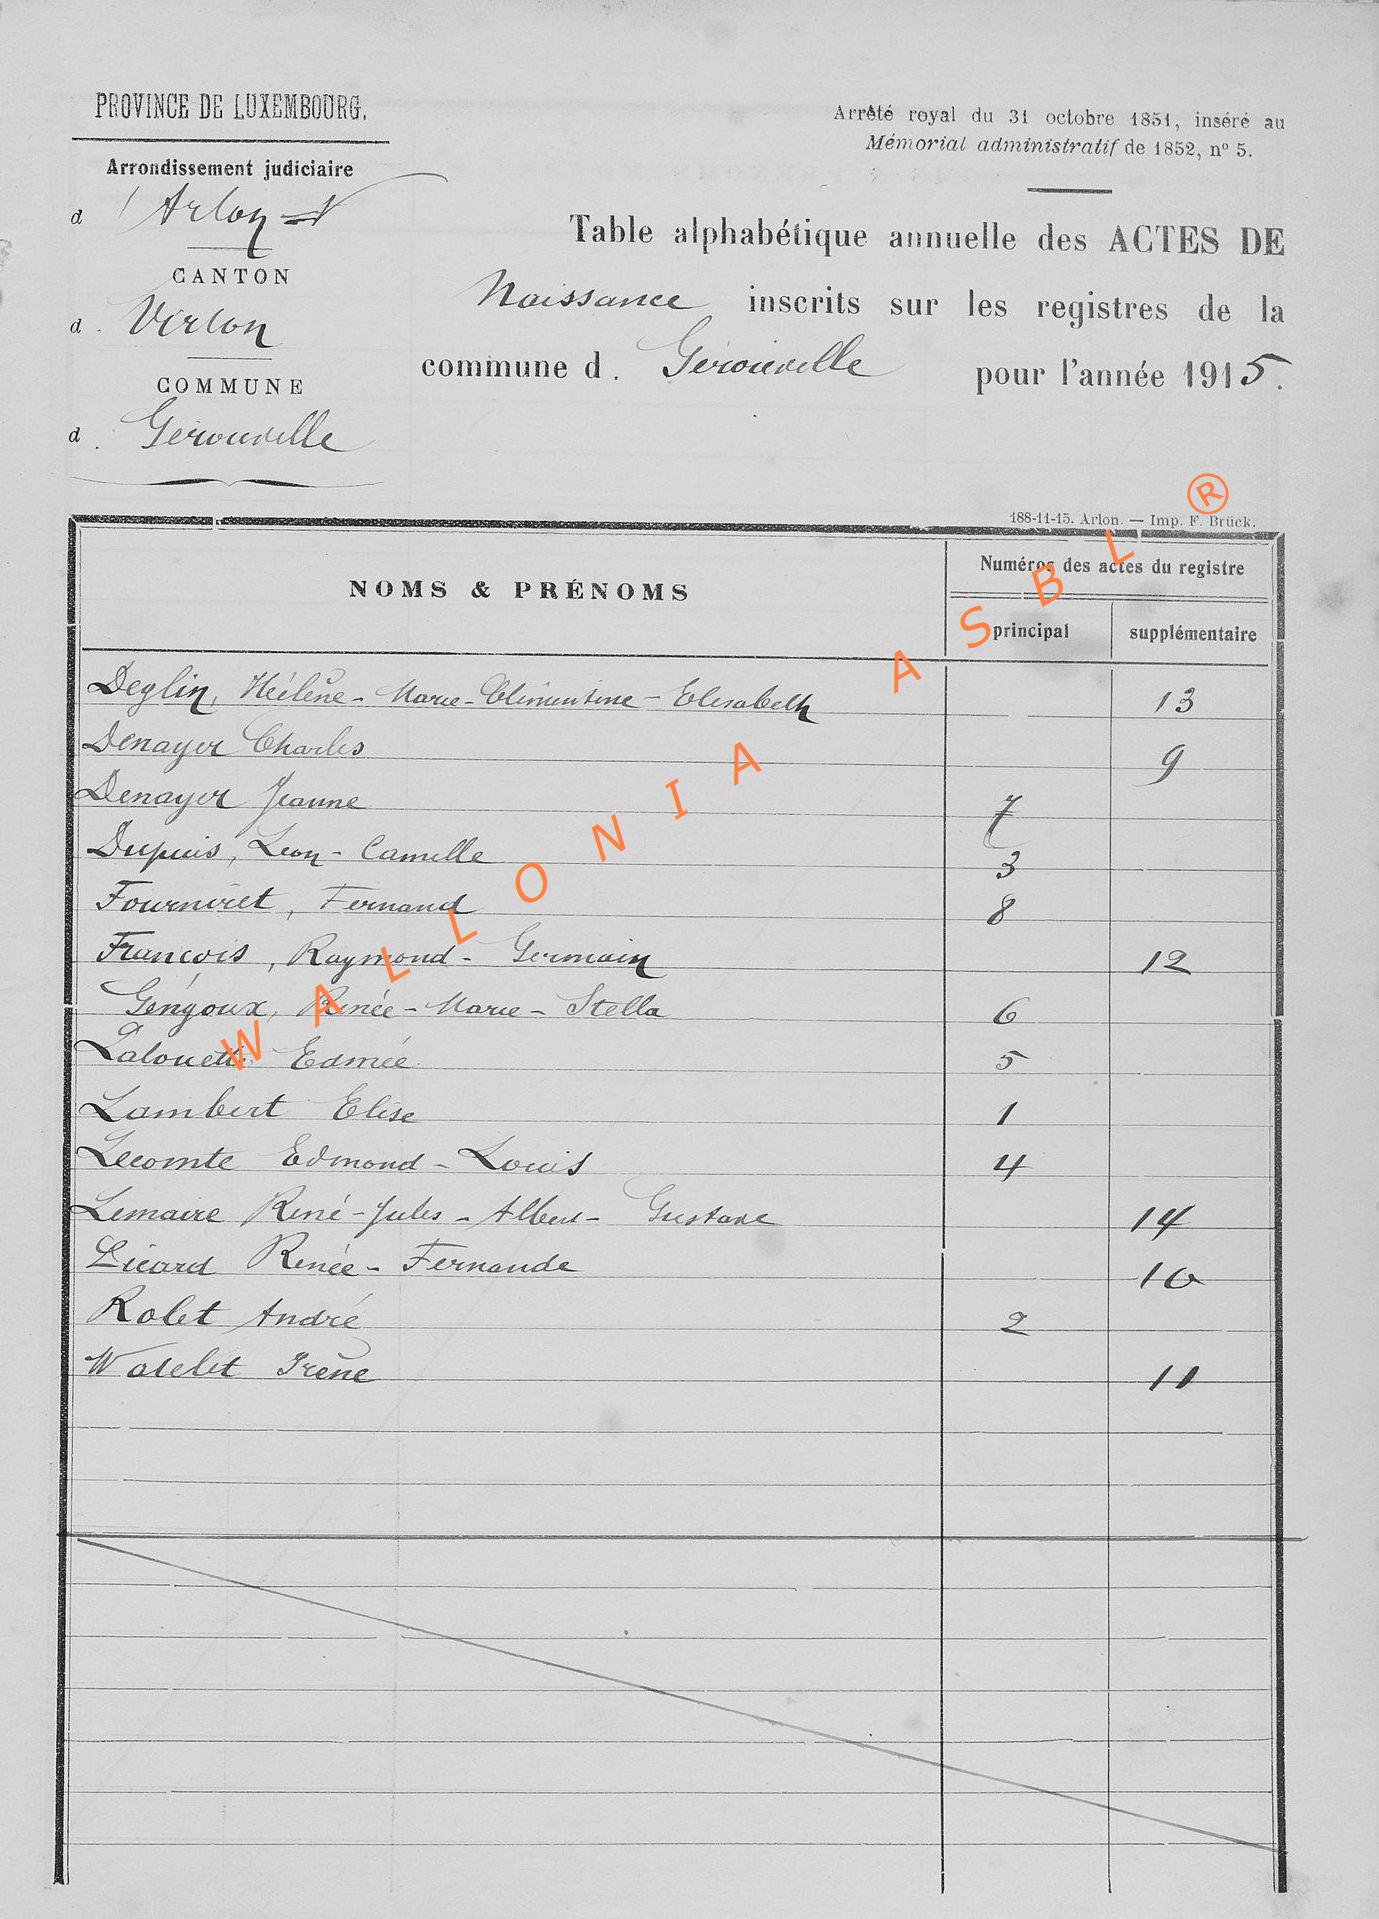 PROVINCE DE LUXEMBOURG.
Arrondissement judiciaire
d'Arlon
CANTON
d. Virton
COMMUNE
d. Gérouville
Arrêté royal du 31 octobre 1851, inséré au
Mémorial administratif de 1852, nº 5.
Table alphabétique annuelle des ACTES DE
Naissance inscrits sur les registres de la
commune d. Gérouville pour l'année 1915.
188-11-15. Arlon. — Imp. F. Brück.
NOMS & PRÉNOMS
Numéros des actes du registre
principal supplémentaire
Deglin, Héléne - Marie - Clémentine - Elisabeth 13
Denayer Charles 9
Denayer Jeanne 7
Dupuis, Léon - Camille 3
Fourniret, Fernand 8
François, Raymond - Germain 12
Gengoux, Renée - Marie - Stella 6
Edmée 5
Lambert Elise 1
Lecomte Edmond - Louis 4
Lemaire René - Jules - Albert - Gustave 14
Renée - Fernande 10
Rolet André 2
Watelet Irène 11
WALLONIA ASBL ®